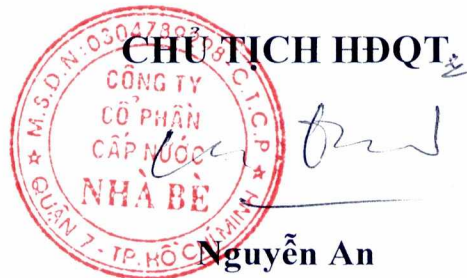 CHỦ TỊCH HĐQT
M.S.D.N:0304789298-C.T.C.P
CÔNG TY
CỔ PHẦN
CẤP NƯỚC
NHÀ BÈ
QUẬN 7 - TP. HỒ CHÍ MINH
Nguyễn An